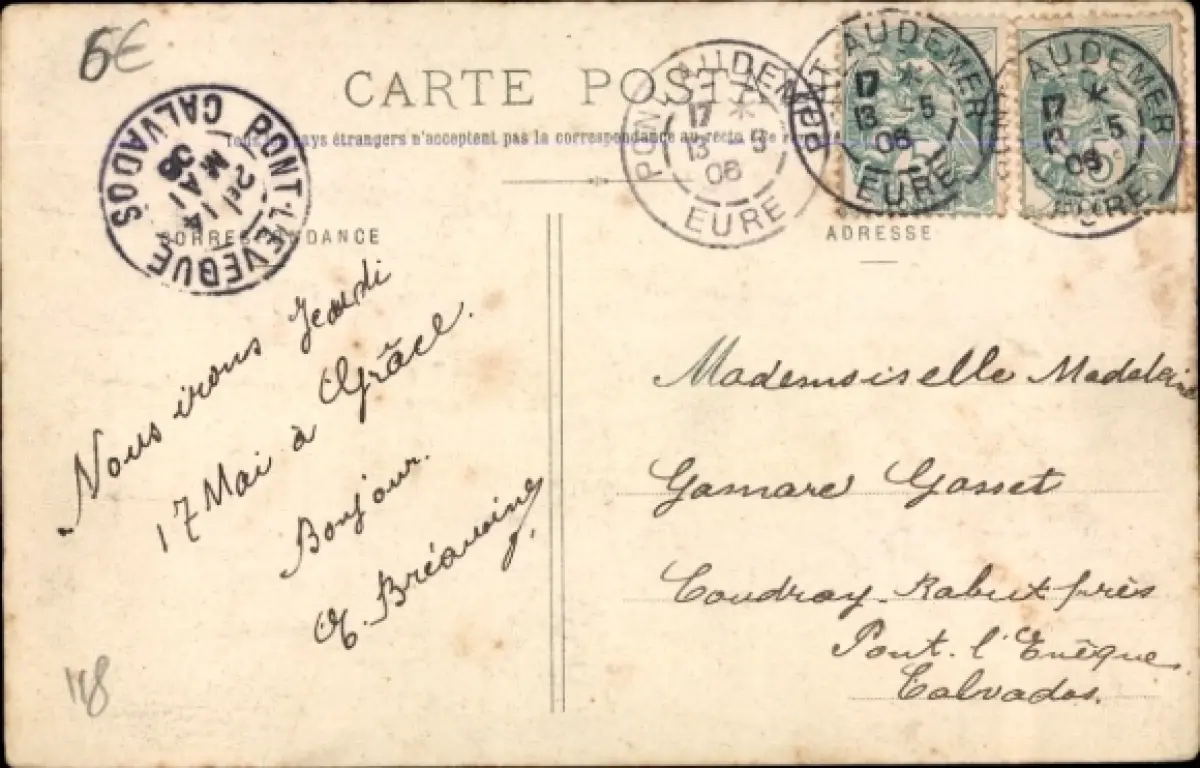 6€
CARTE POSTA
pays étrangers n'acceptent pas la correspondance au recto
PONT-L'EVEQUE
CALVADOS
2E/14
MAI
06
PONT AUDEMER
17 *
13 -5
06
EURE
PONT AUDEMER
17 *
13 -5
06
EURE
AUDEMER
17 *
13 5
06
EURE
CORRESPONDANCE
ADRESSE
Nous irons Jeudi
17 Mai à Grâce.
Bonjour.
Mademoiselle Madeleine
Gamare Gosset
Coudray-Rabut près
Pont-l'Evêque
Calvados.
118